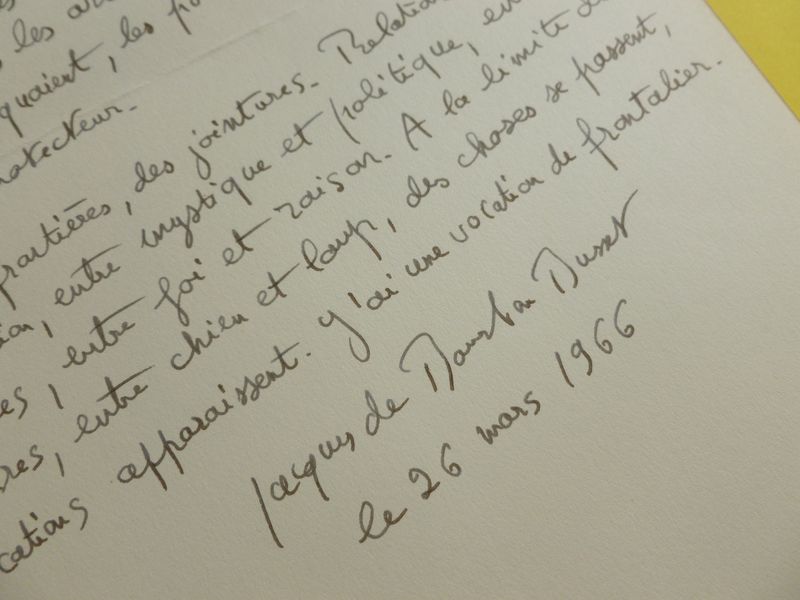 les
quaient, les
frontières, des jointures. Relation
entre mystique et politique, en
entre foi et raison. A la limite de
entre chien et loup, des choses se passent,
apparaissent. J'ai une vocation de frontalier.
Jacques de Bourbon Busset
le 26 mars 1966